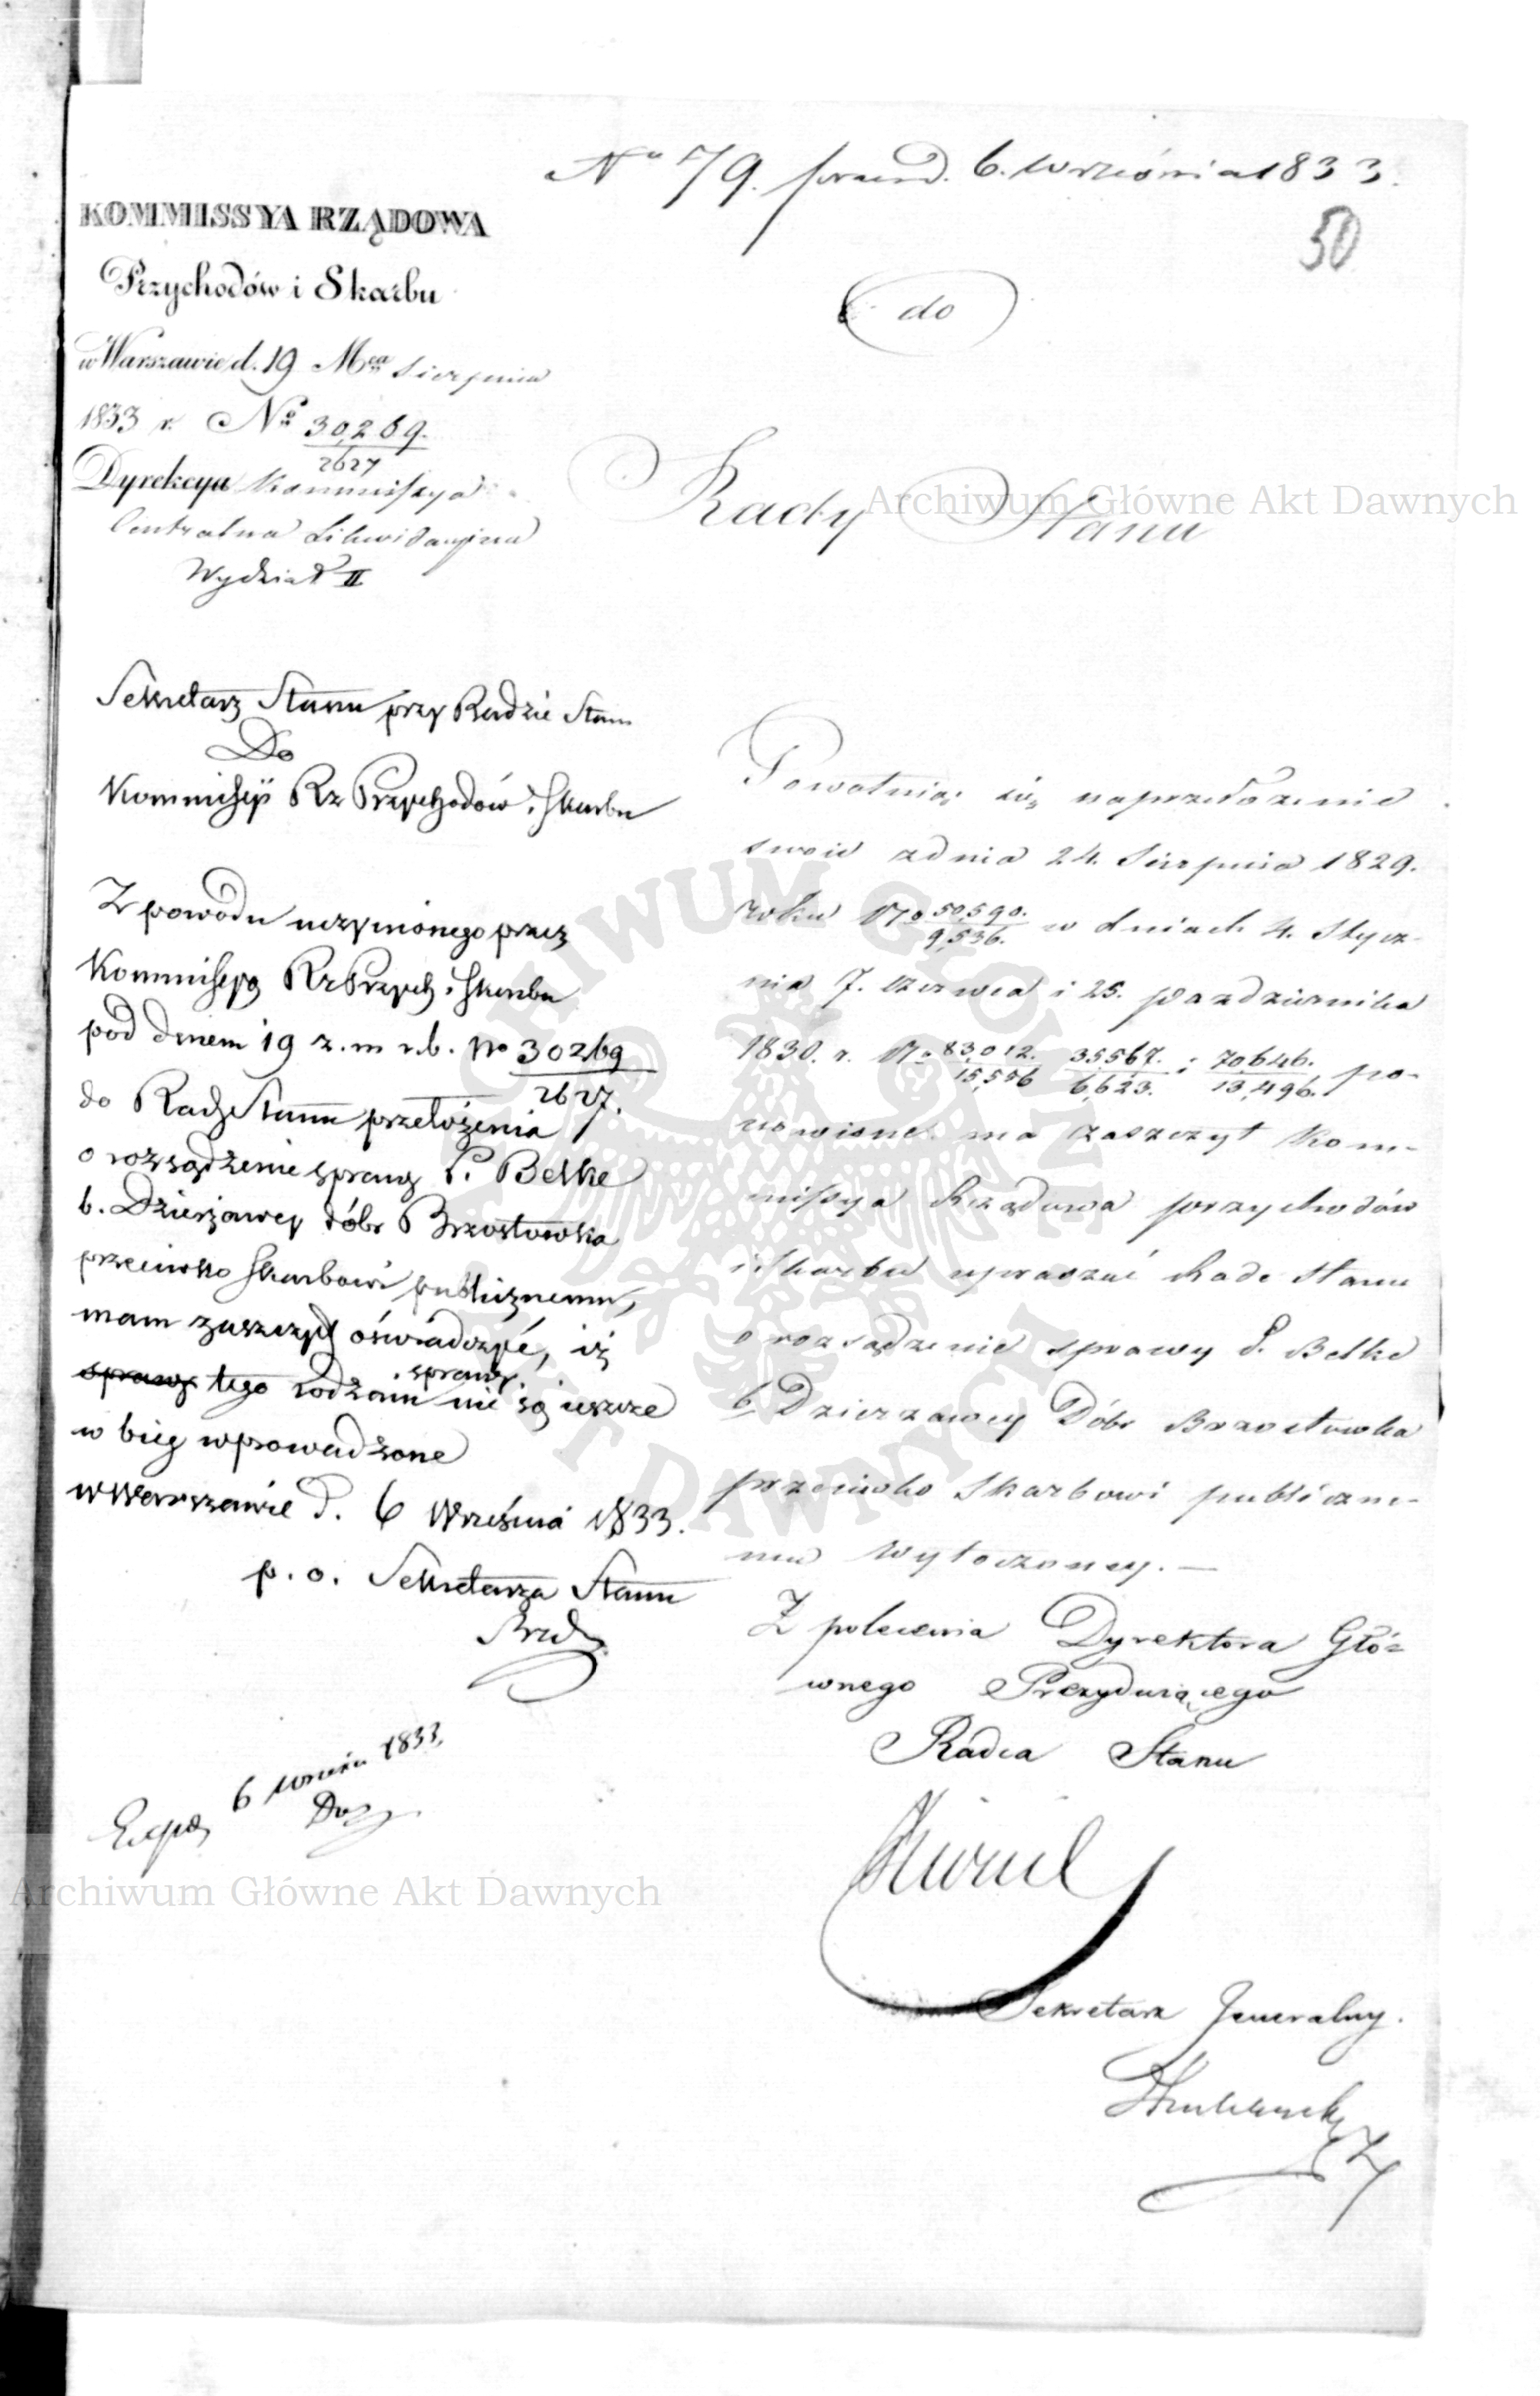 No 79. praes. d. 6. Września 1833.
50
KOMMISSYA RZĄDOWA
Przychodów i Skarbu
w Warszawie d. 19 Mca Sierpnia
1833 r. No 30,269.
2627
Dyrekcya Kommissya
Centralna Likwidacyjna
Wydział II
do
Rady Stanu
Archiwum Główne Akt Dawnych
Sekretarz Stanu przy Radzie Stanu
Do
Kommissyi Rz Przychodów i Skarbu
Z powodu uczynionego przez
Kommissyą Rz Przych. i Skarbu
pod dniem 19 z. m r. b. No 30269
2627.
do Rady Stanu przełożenia
o rozsądzenie sprawy P. Belke
b. Dzierżawcy dóbr Brzostowka
przeciwko Skarbowi publicznemu,
mam zaszczyt oświadczyć, iż
sprawy tego rodzaiu sprawy nie są ieszcze
w bieg wprowadzone
w Warszawie d. 6 Września 1833.
p. o. Sekretarza Stanu
Exped. 6 Września 1833.
Powołuiąc się na przełożenie
swoie z dnia 24. Sierpnia 1829.
roku No 50,590. / 9,536. w dniach 4. Stycz-
nia 7. Czerwca i 25. Pazdziernika
1830. r. No 83,012. / 15,556 35,567. / 6,623. i 70646. / 13,496. po-
nowione ma zaszczyt Kom-
missya Rządowa Przychodów
i Skarbu upraszać Radę Stanu
o rozsądzenie sprawy P. Belke
b. Dzierzawcy Dóbr Brzostowka
przeciwko Skarbowi publiczne-
mu wytoczoney. —
Z polecenia Dyrektora Głó-
wnego Prezyduiącego
Radca Stanu
Sekretarz Jeneralny.
Archiwum Główne Akt Dawnych
ARCHIWUM GŁÓWNE AKT DAWNYCH